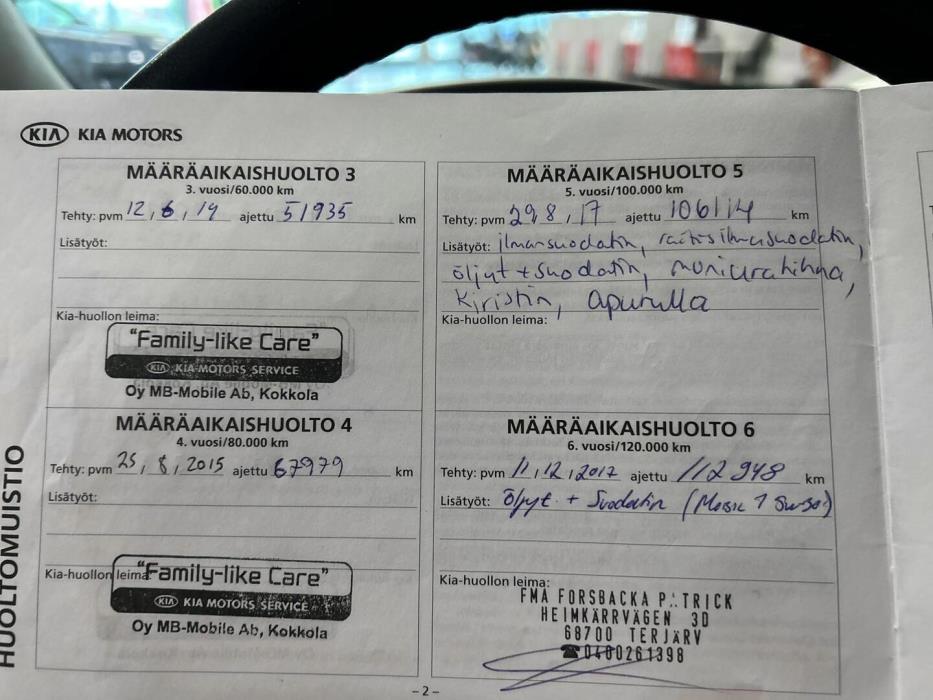 KIA KIA MOTORS
MÄÄRÄAIKAISHUOLTO 3
3. vuosi/60.000 km
Tehty: pvm 12,6,14 ajettu 51935 km
Lisätyöt:
Kia-huollon leima:
"Family-like Care"
KIA KIA MOTORS SERVICE
Oy MB-Mobile Ab, Kokkola
MÄÄRÄAIKAISHUOLTO 4
4. vuosi/80.000 km
Tehty: pvm 25,8,2015 ajettu 67979 km
Lisätyöt:
Kia-huollon leima:
"Family-like Care"
KIA KIA MOTORS SERVICE
Oy MB-Mobile Ab, Kokkola
MÄÄRÄAIKAISHUOLTO 5
5. vuosi/100.000 km
Tehty: pvm 29,8,17 ajettu 106114 km
Lisätyöt: ilmansuodatin, raitisilmasuodatin,
öljyt + suodatin, moniurahihna,
kiristin, apurulla
Kia-huollon leima:
MÄÄRÄAIKAISHUOLTO 6
6. vuosi/120.000 km
Tehty: pvm 11,12,2017 ajettu 112948 km
Lisätyöt: öljyt + Suodatin
Kia-huollon leima:
FMA FORSBACKA P:TRICK
HEIMKÄRRVÄGEN 3D
68700 TERJÄRV
☎0400261398
HUOLTOMUISTIO
–2–